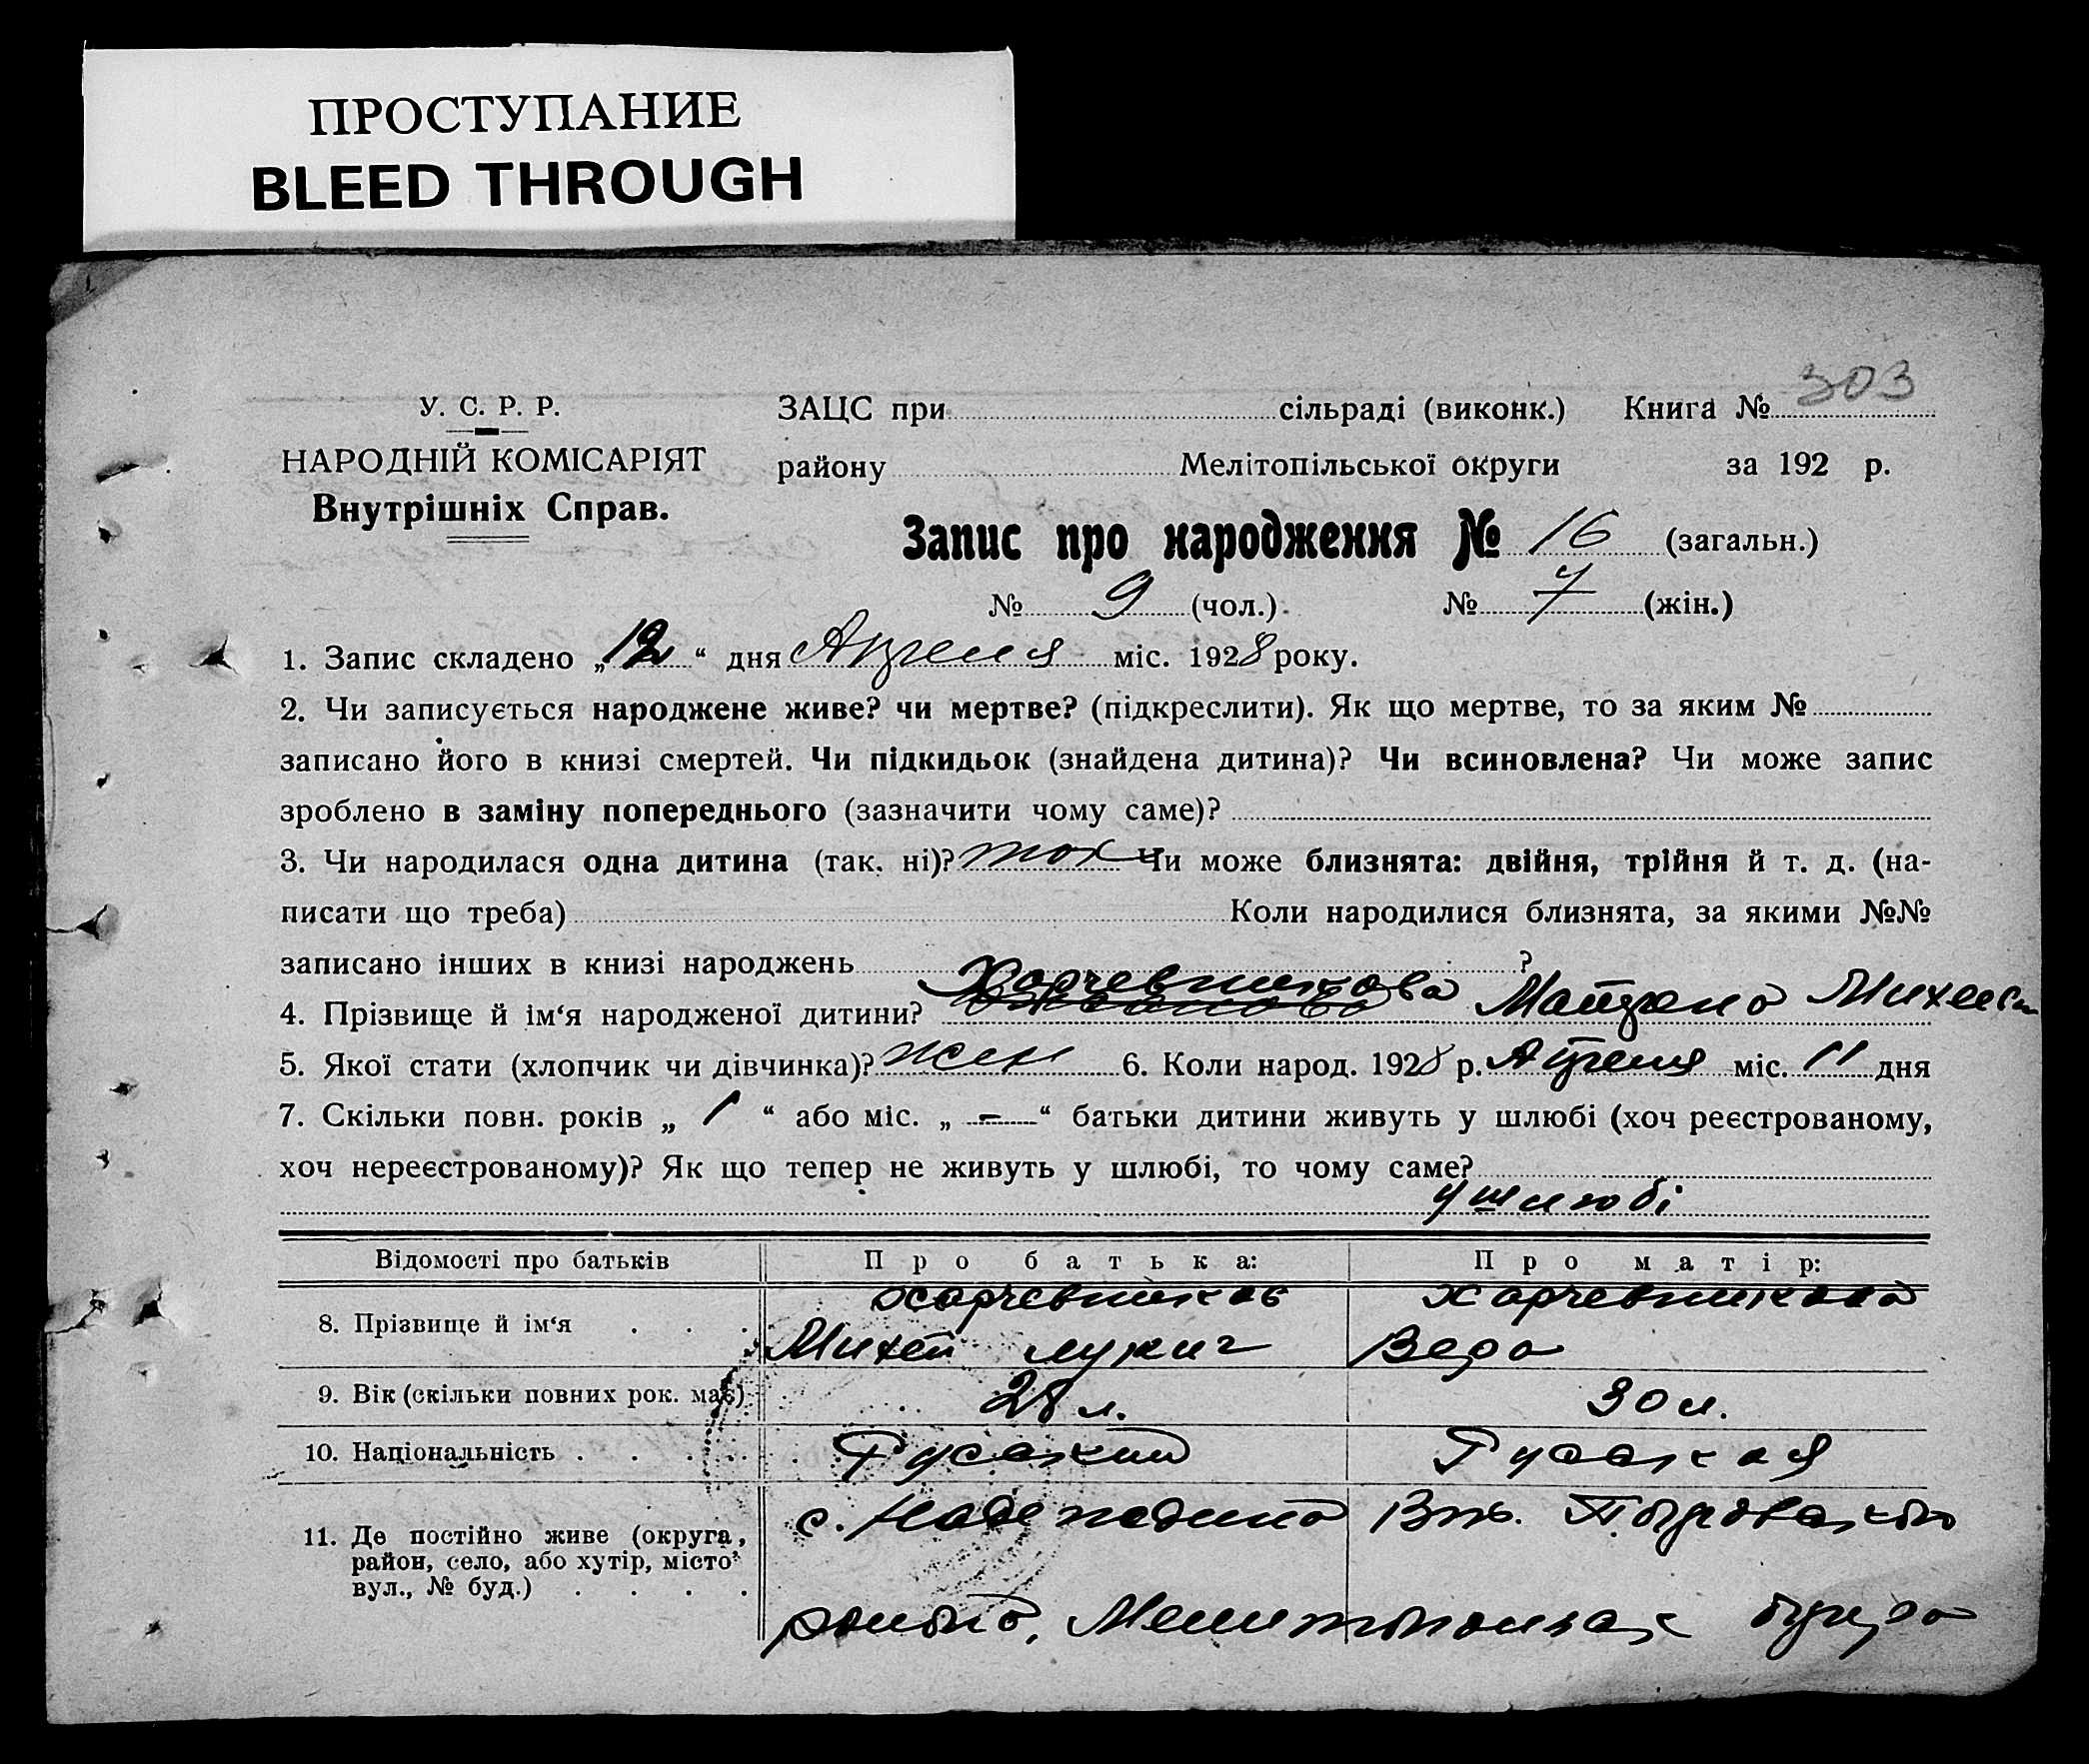 ПРОСТУПАНИЕ
BLEED THROUGH
303
У. С. Р. Р.
НАРОДНІЙ КОМІСАРІЯТ
Внутрішніх Справ.
ЗАЦС при сільраді (виконк.) Книга №
району Мелітопільської округи за 192 р.
Запис про народження № 16 (загальн.)
№ 9 (чол.) № 7 (жін.)
1. Запис складено „12“ дня Апреля міс. 1928 року.
2. Чи записується народжене живе? чи мертве? (підкреслити). Як що мертве, то за яким №
записано його в книзі смертей. Чи підкидьок (знайдена дитина)? Чи всиновлена? Чи може запис
зроблено в заміну попереднього (зазначити чому саме)?
3. Чи народилася одна дитина (так, ні)? так Чи може близнята: двійня, трійня й т. д. (на-
писати що треба) Коли народилися близнята, за якими №№
записано інших в книзі народжень ?
4. Прізвище й ім‘я народженої дитини? Харчевникова Матрена
5. Якої стати (хлопчик чи дівчинка)? жен 6. Коли народ. 1928 р. Апреля міс. 11 дня
7. Скільки повн. років „ 1 “ або міс. „ – “ батьки дитини живуть у шлюбі (хоч реєстрованому,
хоч нереєстрованому)? Як що тепер не живуть у шлюбі, то чому саме?
у шлюбі
Відомості про батьків Про батька: Про матір:
8. Прізвище й ім‘я . . . Харчевников Харчевникова
Михей Лукич Вера
9. Вік (скільки повних рок. має) 28 л. 30 л.
10. Національність . . . . Русский Русская
11. Де постійно живе (округа, район, село, або хутір, місто, вул., № буд.) . . . . с. Надеждино
района, Мелитопольск округа